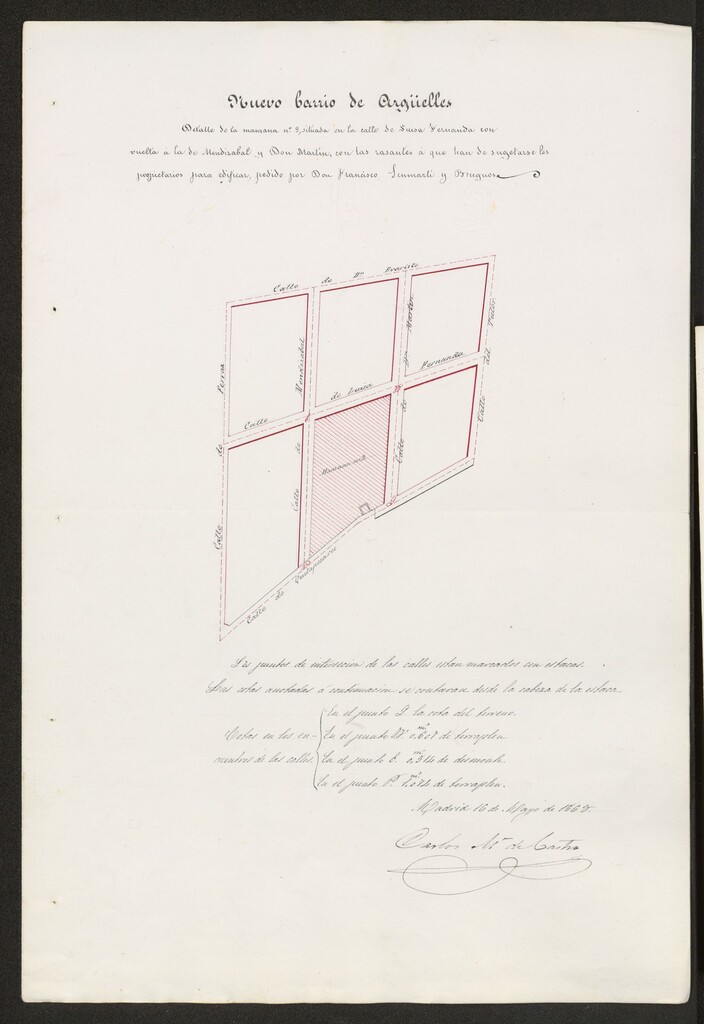 Nuevo barrio de Argüelles
Detalle de la manzana nº 9, situada en la calle de Luisa Fernanda con
vuelta á la de Mendizabal y Don Martin, con las rasantes á que han de sugetarse los
propietarios para edificar, pedido por Don Francisco y Brugnos
Calle de Dn Evaristo
Calle de Ferraz
Calle de Mendizabal
Calle de Dn Martin
Calle del Tutor
Calle de Luisa Fernanda
Manzana nº 9
Calle de
Los puntos de interseccion de las calles estan marcados con estacas.
Las cotas anotadas á continuacion se contaran desde la cabeza de la estaca.
Cotas en los en-
cuentros de las calles.
En el punto la cota del terreno.
En el punto de terraplen
En el punto de desmonte.
En el punto P. de terraplen.
Madrid 16 de Mayo de
Carlos Mª de Castro